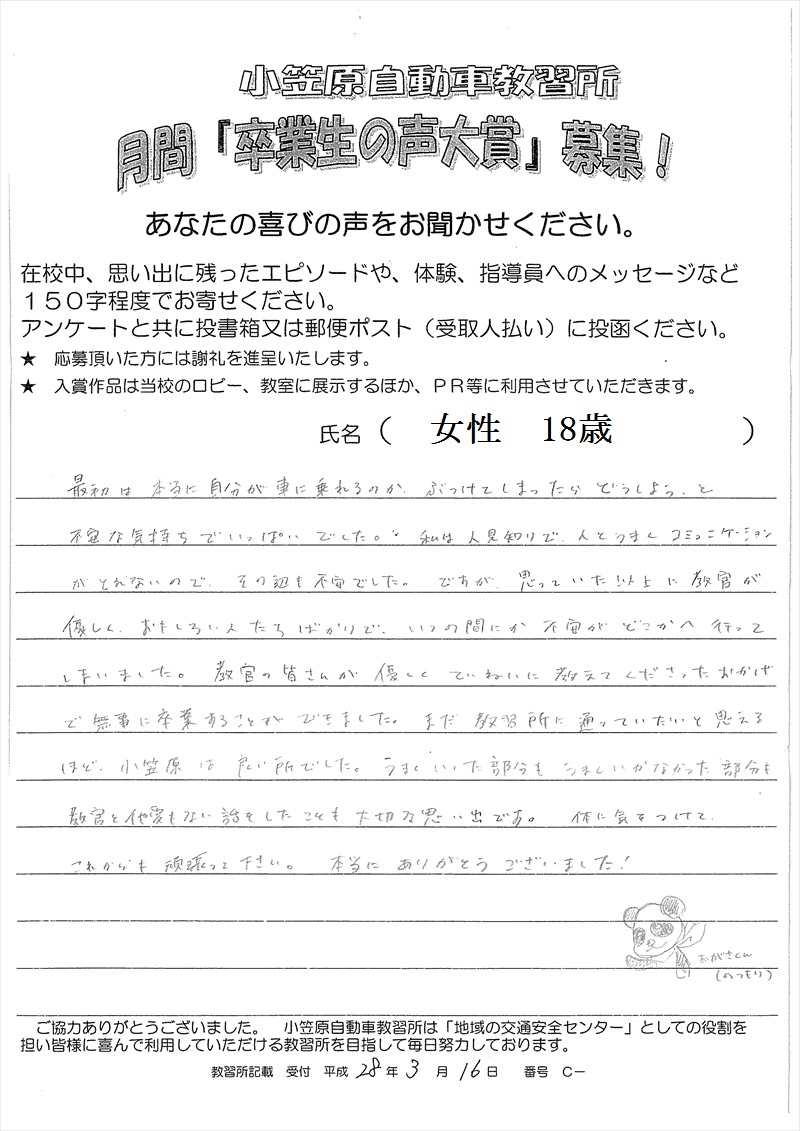 小笠原自動車教習所
月間「卒業生の声大賞」募集!
あなたの喜びの声をお聞かせください。
在校中、思い出に残ったエピソードや、体験、指導員へのメッセージなど
150字程度でお寄せください。
アンケートと共に投書箱又は郵便ポスト(受取人払い)に投函ください。
★ 応募頂いた方には謝礼を進呈いたします。
★ 入賞作品は当校のロビー、教室に展示するほか、PR等に利用させていただきます。
氏名( 女性 18歳 )
最初は本当に自分が車に乗れるのか、ぶつけてしまったらどうしよう、と
不安な気持ちでいっぱいでした。私は人見知りで、人とうまくコミュニケーション
がとれないので、その辺も不安でした。ですが、思っていた以上に教官が
優しく、おもしろい人たちばかりで、いつの間にか不安がどこかへ行って
しまいました。教官の皆さんが優しくていねいに教えてくださったおかげ
で無事に卒業することができました。まだ教習所に通っていたいと思える
ほど、小笠原は良い所でした。うまくいった部分もうまくいかなかった部分も
教官と他愛もない話をしたことも大切な思い出です。体に気をつけて、
これからも頑張って下さい。本当にありがとうございました!
おがさくん
(のつもり)
ご協力ありがとうございました。 小笠原自動車教習所は「地域の交通安全センター」としての役割を
担い皆様に喜んで利用していただける教習所を目指して毎日努力しております。
教習所記載 受付 平成 28年 3月 16日 番号 C－